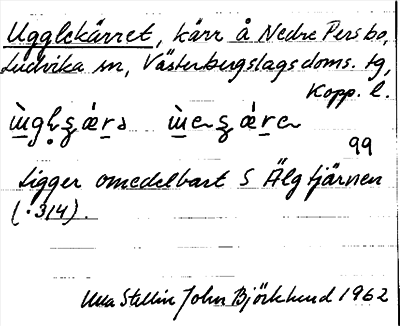 Ugglekärret, kärr å Nedre Persbo,
Ludvika sn, Västerbergslags doms. tg,
Kopp. l.
99
Ligger omedelbart S Älgtjärnen
(·314).
Ulla Stellin John Björklund 1962